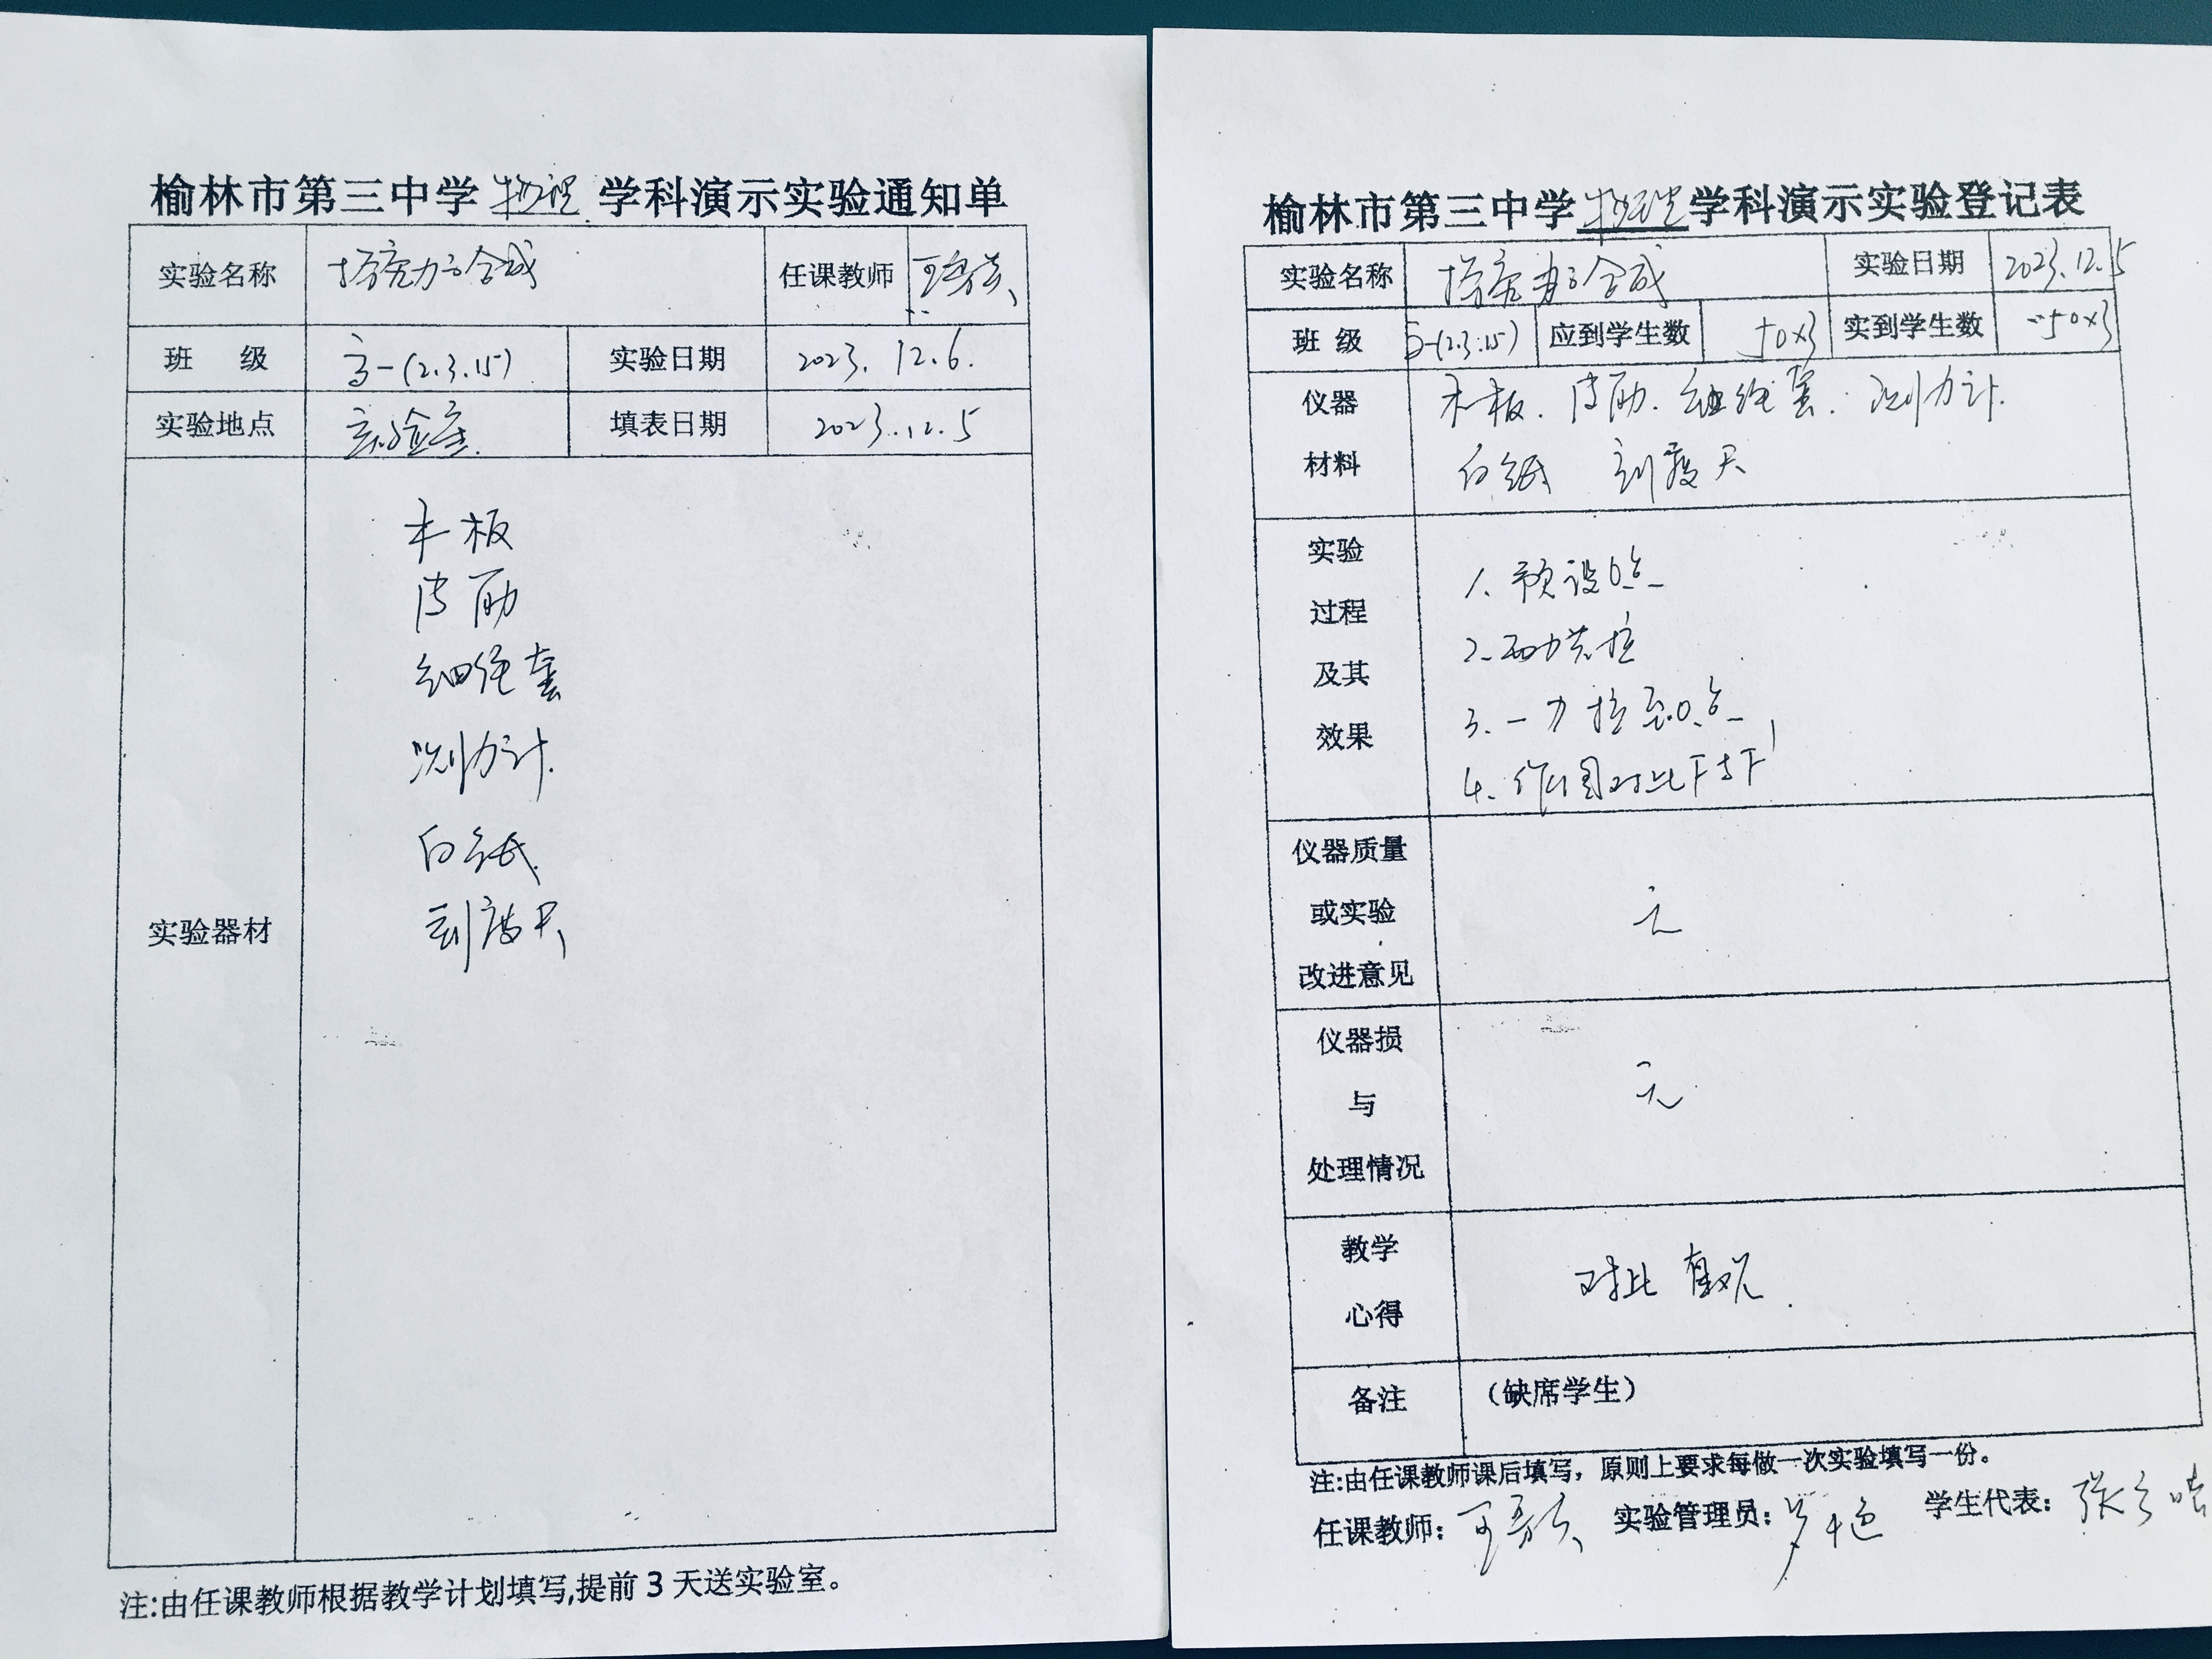 榆林市第三中学 物理 学科演示实验通知单
实验名称 探究力的合成 任课教师
班 级 高一(2.3.15) 实验日期 2023.12.6.
实验地点 实验室. 填表日期 2023.12.5
实验器材
木板
皮筋
细绳套
测力计.
白纸.
刻度尺
注:由任课教师根据教学计划填写,提前3天送实验室。
榆林市第三中学 物理 学科演示实验登记表
实验名称 探究力的合成 实验日期 2023.12.5
班 级 高一(2.3.15) 应到学生数 50×3 实到学生数 50×3
仪器 木板. 皮筋. 细绳套. 测力计.
材料 白纸 刻度尺
实验
过程
及其
效果
1、预设O点
2、两力共拉
3、一力拉至O点
4、作图对比F与F'
仪器质量
或实验
改进意见
无
仪器损
与
处理情况
无
教学
心得
对比 直观.
备注 (缺席学生)
注:由任课教师课后填写，原则上要求每做一次实验填写一份。
任课教师: 实验管理员: 学生代表: